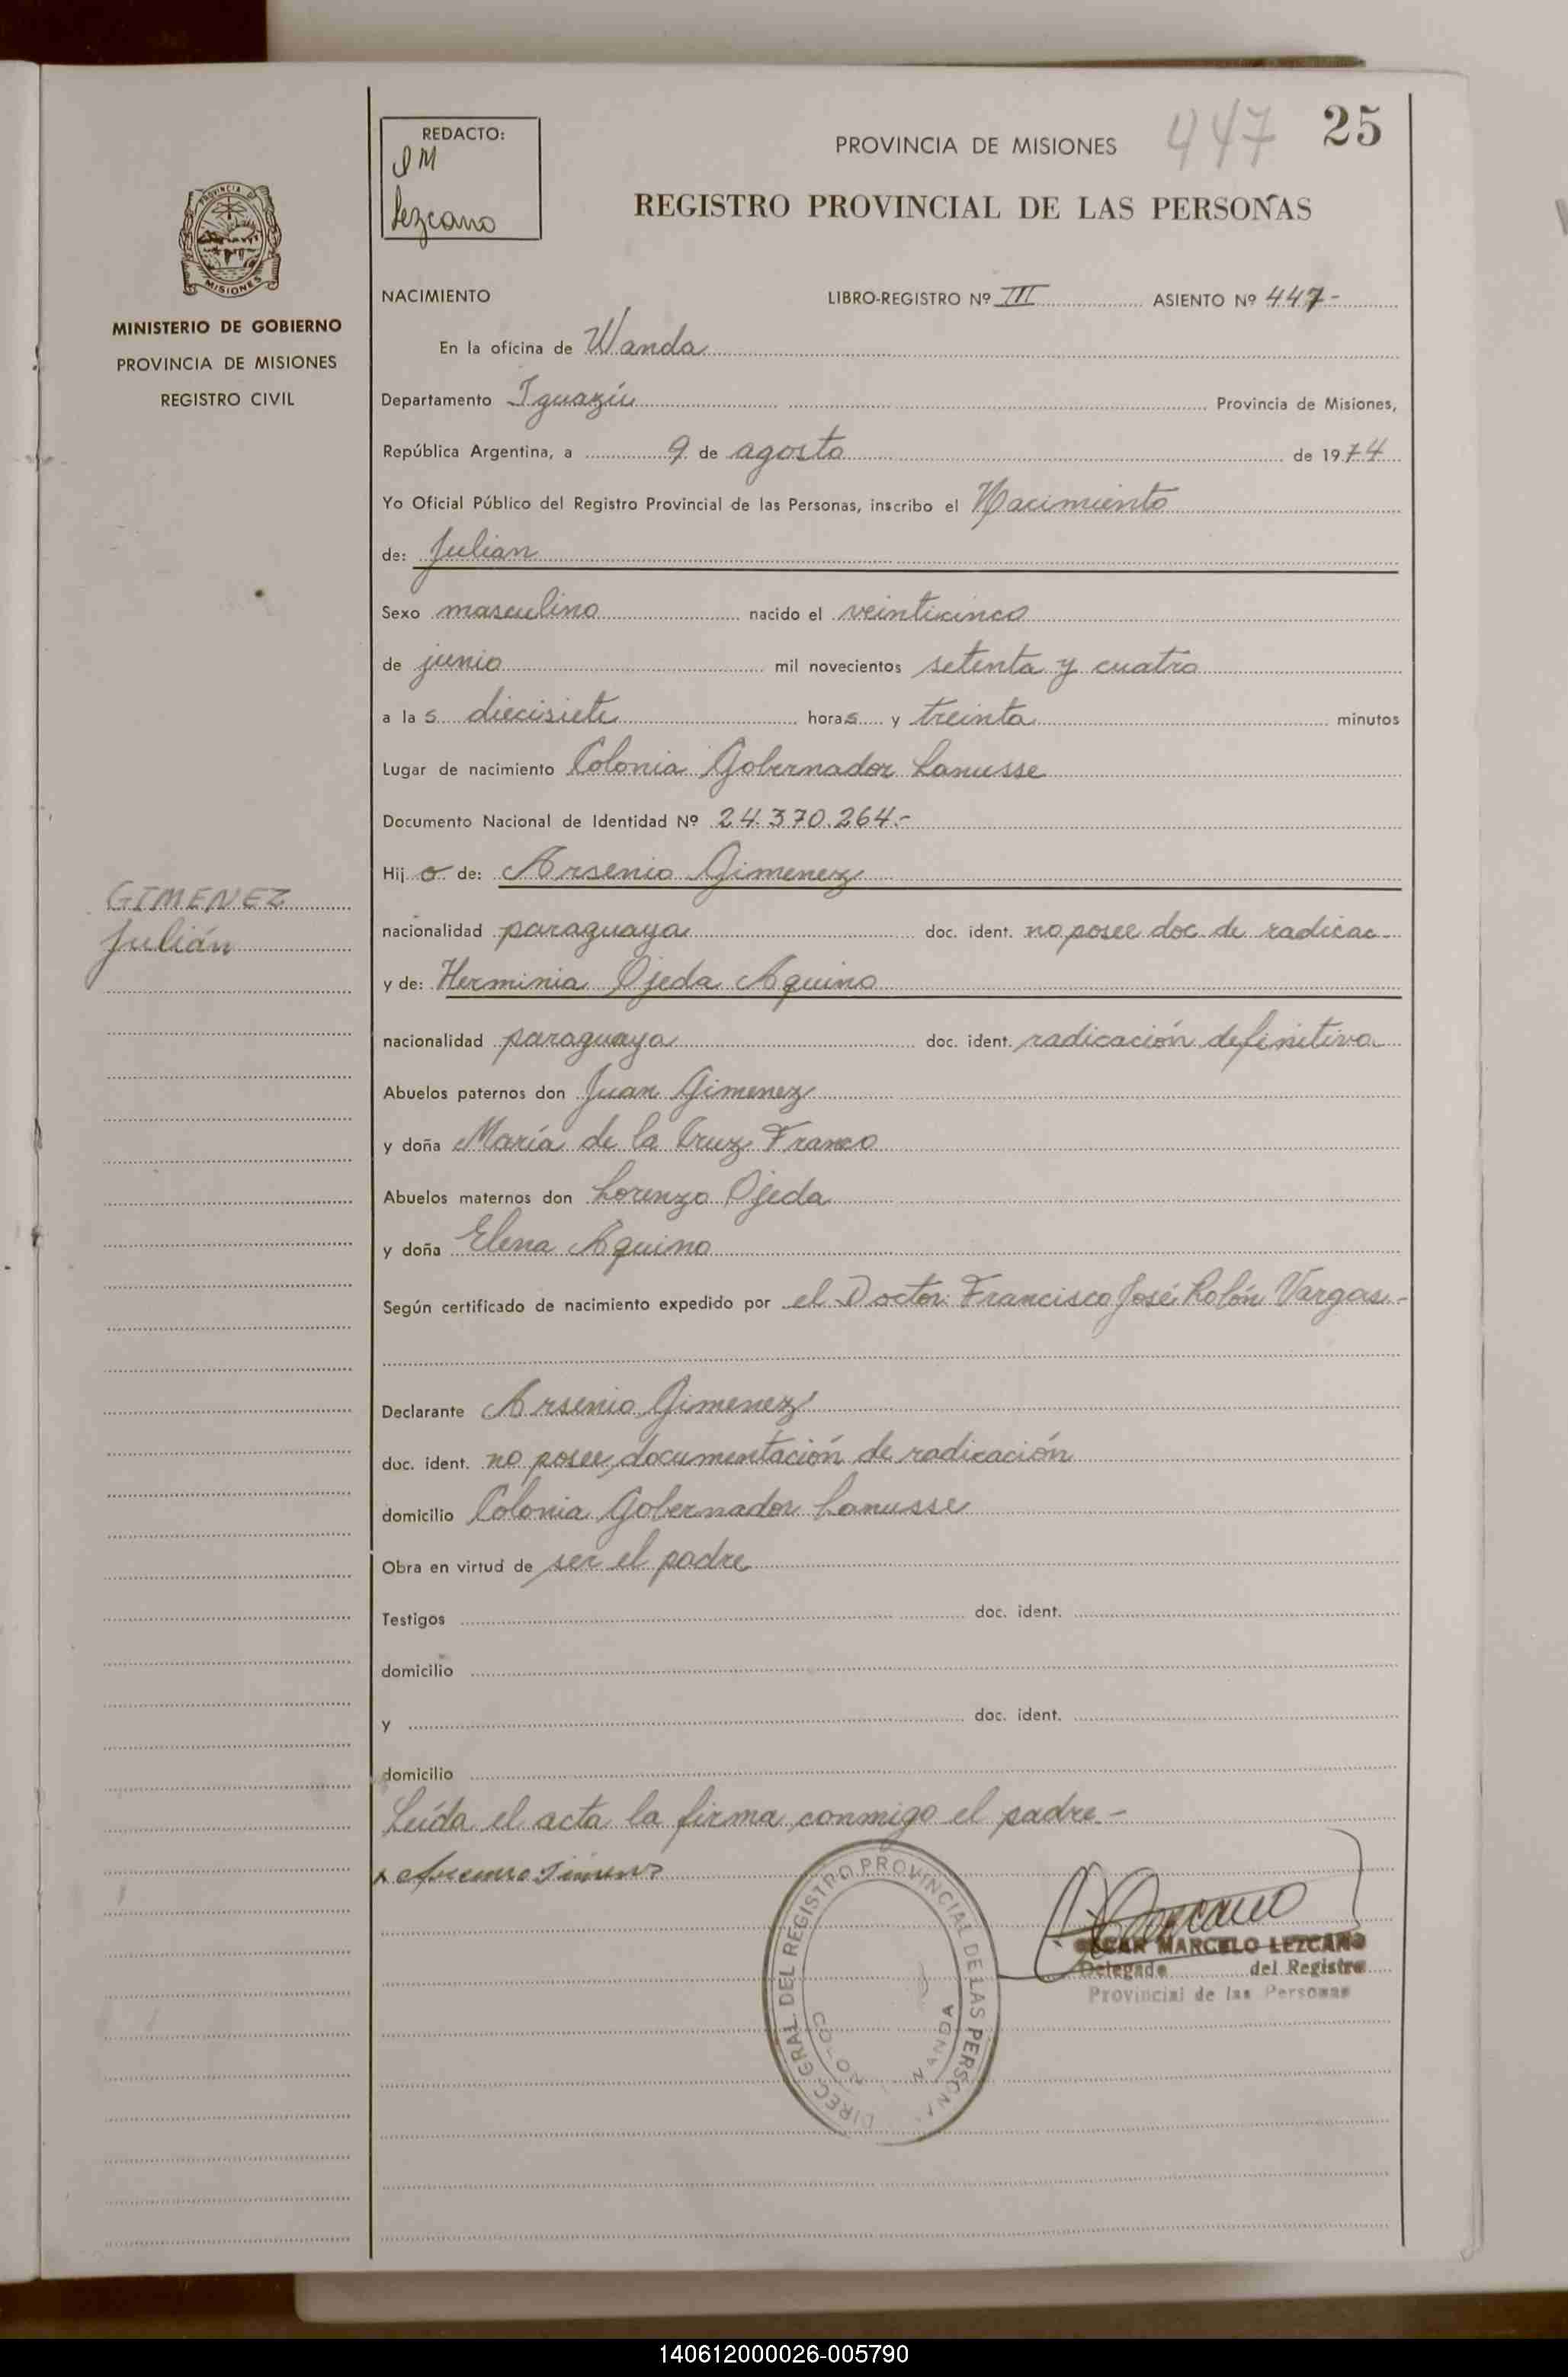 PROVINCIA DE MISIONES 447 25
REGISTRO PROVINCIAL DE LAS PERSONAS
REDACTO:
OM
Lezcano
MISIONES
MINISTERIO DE GOBIERNO
PROVINCIA DE MISIONES
REGISTRO CIVIL
GIMENEZ
Julián
NACIMIENTO LIBRO-REGISTRO Nº III ASIENTO Nº 447-
En la oficina de Wanda
Departamento Iguazú Provincia de Misiones,
República Argentina, a 9 de agosto de 1974
Yo Oficial Público del Registro Provincial de las Personas, inscribo el Nacimiento
de: Julian
Sexo masculino nacido el veinticinco
de junio mil novecientos setenta y cuatro
a las diecisiete horas y treinta minutos
Lugar de nacimiento Colonia Gobernador Lanusse
Documento Nacional de Identidad Nº 24.370.264.-
Hijo de: Arsenio Gimenez
nacionalidad paraguaya doc. ident. no posee doc de radicac-
y de: Herminia Ojeda Aquino
nacionalidad paraguaya doc. ident. radicación definitiva
Abuelos paternos don Juan Gimenez
y doña María de la Cruz Franco
Abuelos maternos don Lorenzo Ojeda
y doña Elena Aquino
Según certificado de nacimiento expedido por el Doctor Francisco José Rolón Vargas.-
Declarante Arsenio Gimenez
doc. ident. no posee documentación de radicación
domicilio Colonia Gobernador Lanusse
Obra en virtud de ser el padre
Testigos doc. ident.
domicilio
y doc. ident.
domicilio
Leída el acta la firma conmigo el padre.-
DIREC. GRAL. DEL REGISTRO PROVINCIAL DE LAS PERSONA
WANDA
OSCAR MARCELO LEZCANO
Delegado del Registro
Provincial de las Personas
140612000026-005790